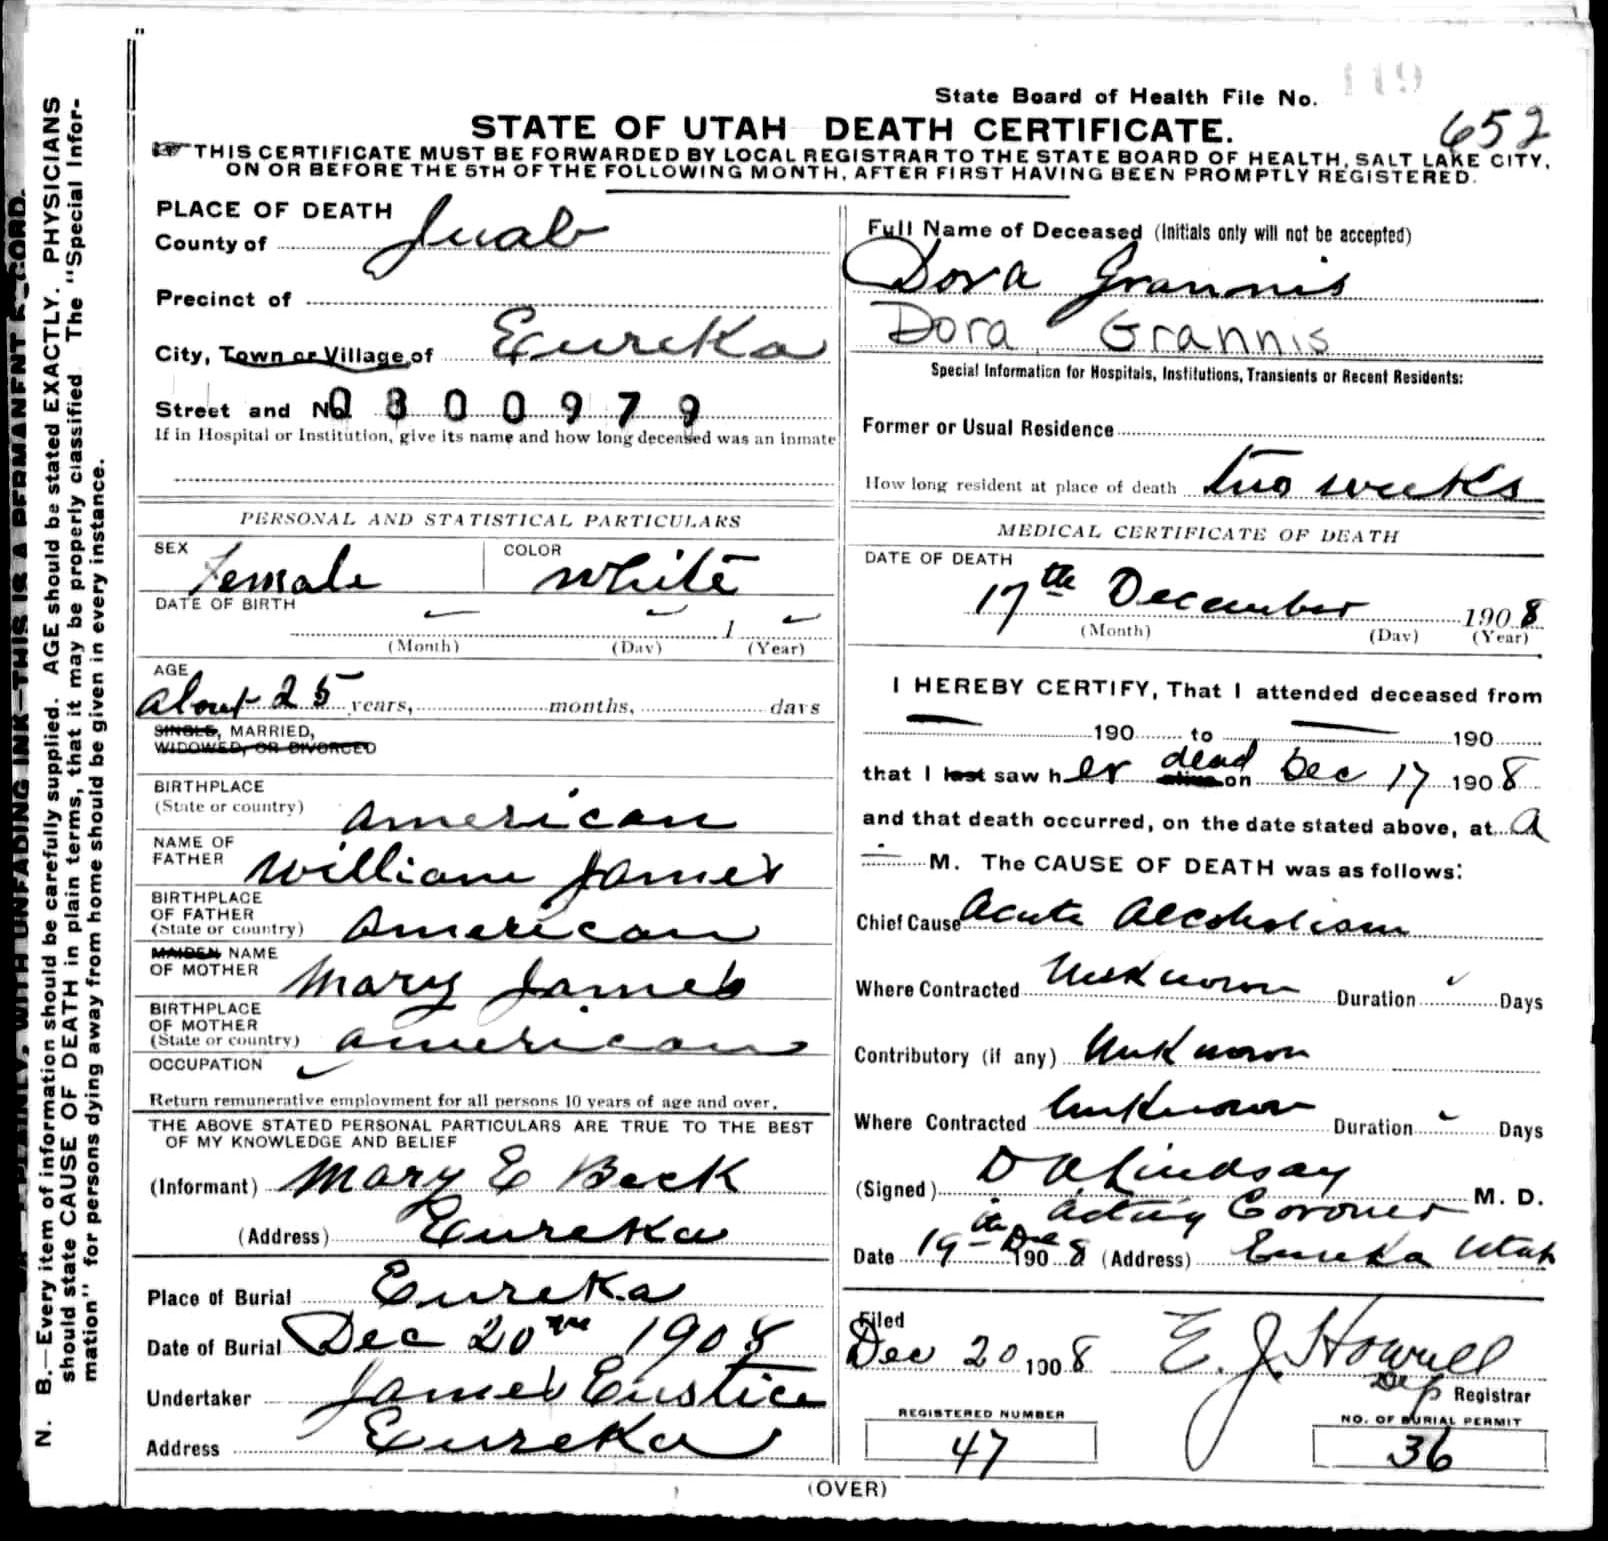 State Board of Health File No. 119
652
STATE OF UTAH DEATH CERTIFICATE.
THIS CERTIFICATE MUST BE FORWARDED BY LOCAL REGISTRAR TO THE STATE BOARD OF HEALTH, SALT LAKE CITY,
ON OR BEFORE THE 5TH OF THE FOLLOWING MONTH, AFTER FIRST HAVING BEEN PROMPTLY REGISTERED.
PLACE OF DEATH
County of Juab
Precinct of
City, Town or Village, of Eureka
Street and No. 0300979
If in Hospital or Institution, give its name and how long deceased was an inmate
PERSONAL AND STATISTICAL PARTICULARS
SEX Female COLOR White
DATE OF BIRTH
1
(Month) (Day) (Year)
AGE
about 25 years, months, days
SINGLE, MARRIED,
WIDOWED, OR DIVORCED
BIRTHPLACE
(State or country) American
NAME OF
FATHER William James
BIRTHPLACE
OF FATHER
(State or country) American
MAIDEN NAME
OF MOTHER Mary James
BIRTHPLACE
OF MOTHER
(State or country) American
OCCUPATION
Return remunerative employment for all persons 10 years of age and over.
THE ABOVE STATED PERSONAL PARTICULARS ARE TRUE TO THE BEST
OF MY KNOWLEDGE AND BELIEF
(Informant) Mary E Beck
(Address) Eureka
Place of Burial Eureka
Date of Burial Dec 20 1908
Undertaker James Eustice
Address Eureka
Full Name of Deceased (Initials only will not be accepted)
Dora Grannis
Dora Grannis
Special Information for Hospitals, Institutions, Transients or Recent Residents:
Former or Usual Residence
How long resident at place of death two weeks
MEDICAL CERTIFICATE OF DEATH
DATE OF DEATH
17th December 1908
(Month) (Day) (Year)
I HEREBY CERTIFY, That I attended deceased from
190 to 190
that I last saw her dead alive on Dec 17 1908
and that death occurred, on the date stated above, at A
M. The CAUSE OF DEATH was as follows:
Chief Cause Acute Alcoholism
Where Contracted Unknown Duration Days
Contributory (if any) Unknown
Where Contracted Unknown Duration Days
(Signed) D A Lindsay M. D.
Acting Coroner
Date 19th Dec 1908 (Address) Eureka Utah
Filed
Dec 20 1908 E. J. Howell
Dep Registrar
REGISTERED NUMBER
47
NO. OF BURIAL PERMIT
36
(OVER)
N. B.—Every item of information should be carefully supplied. AGE should be stated EXACTLY. PHYSICIANS
should state CAUSE OF DEATH in plain terms, that it may be properly classified. The "Special Infor-
mation" for persons dying away from home should be given in every instance.
WITH UNFADING INK—THIS IS A PERMANENT RECORD.